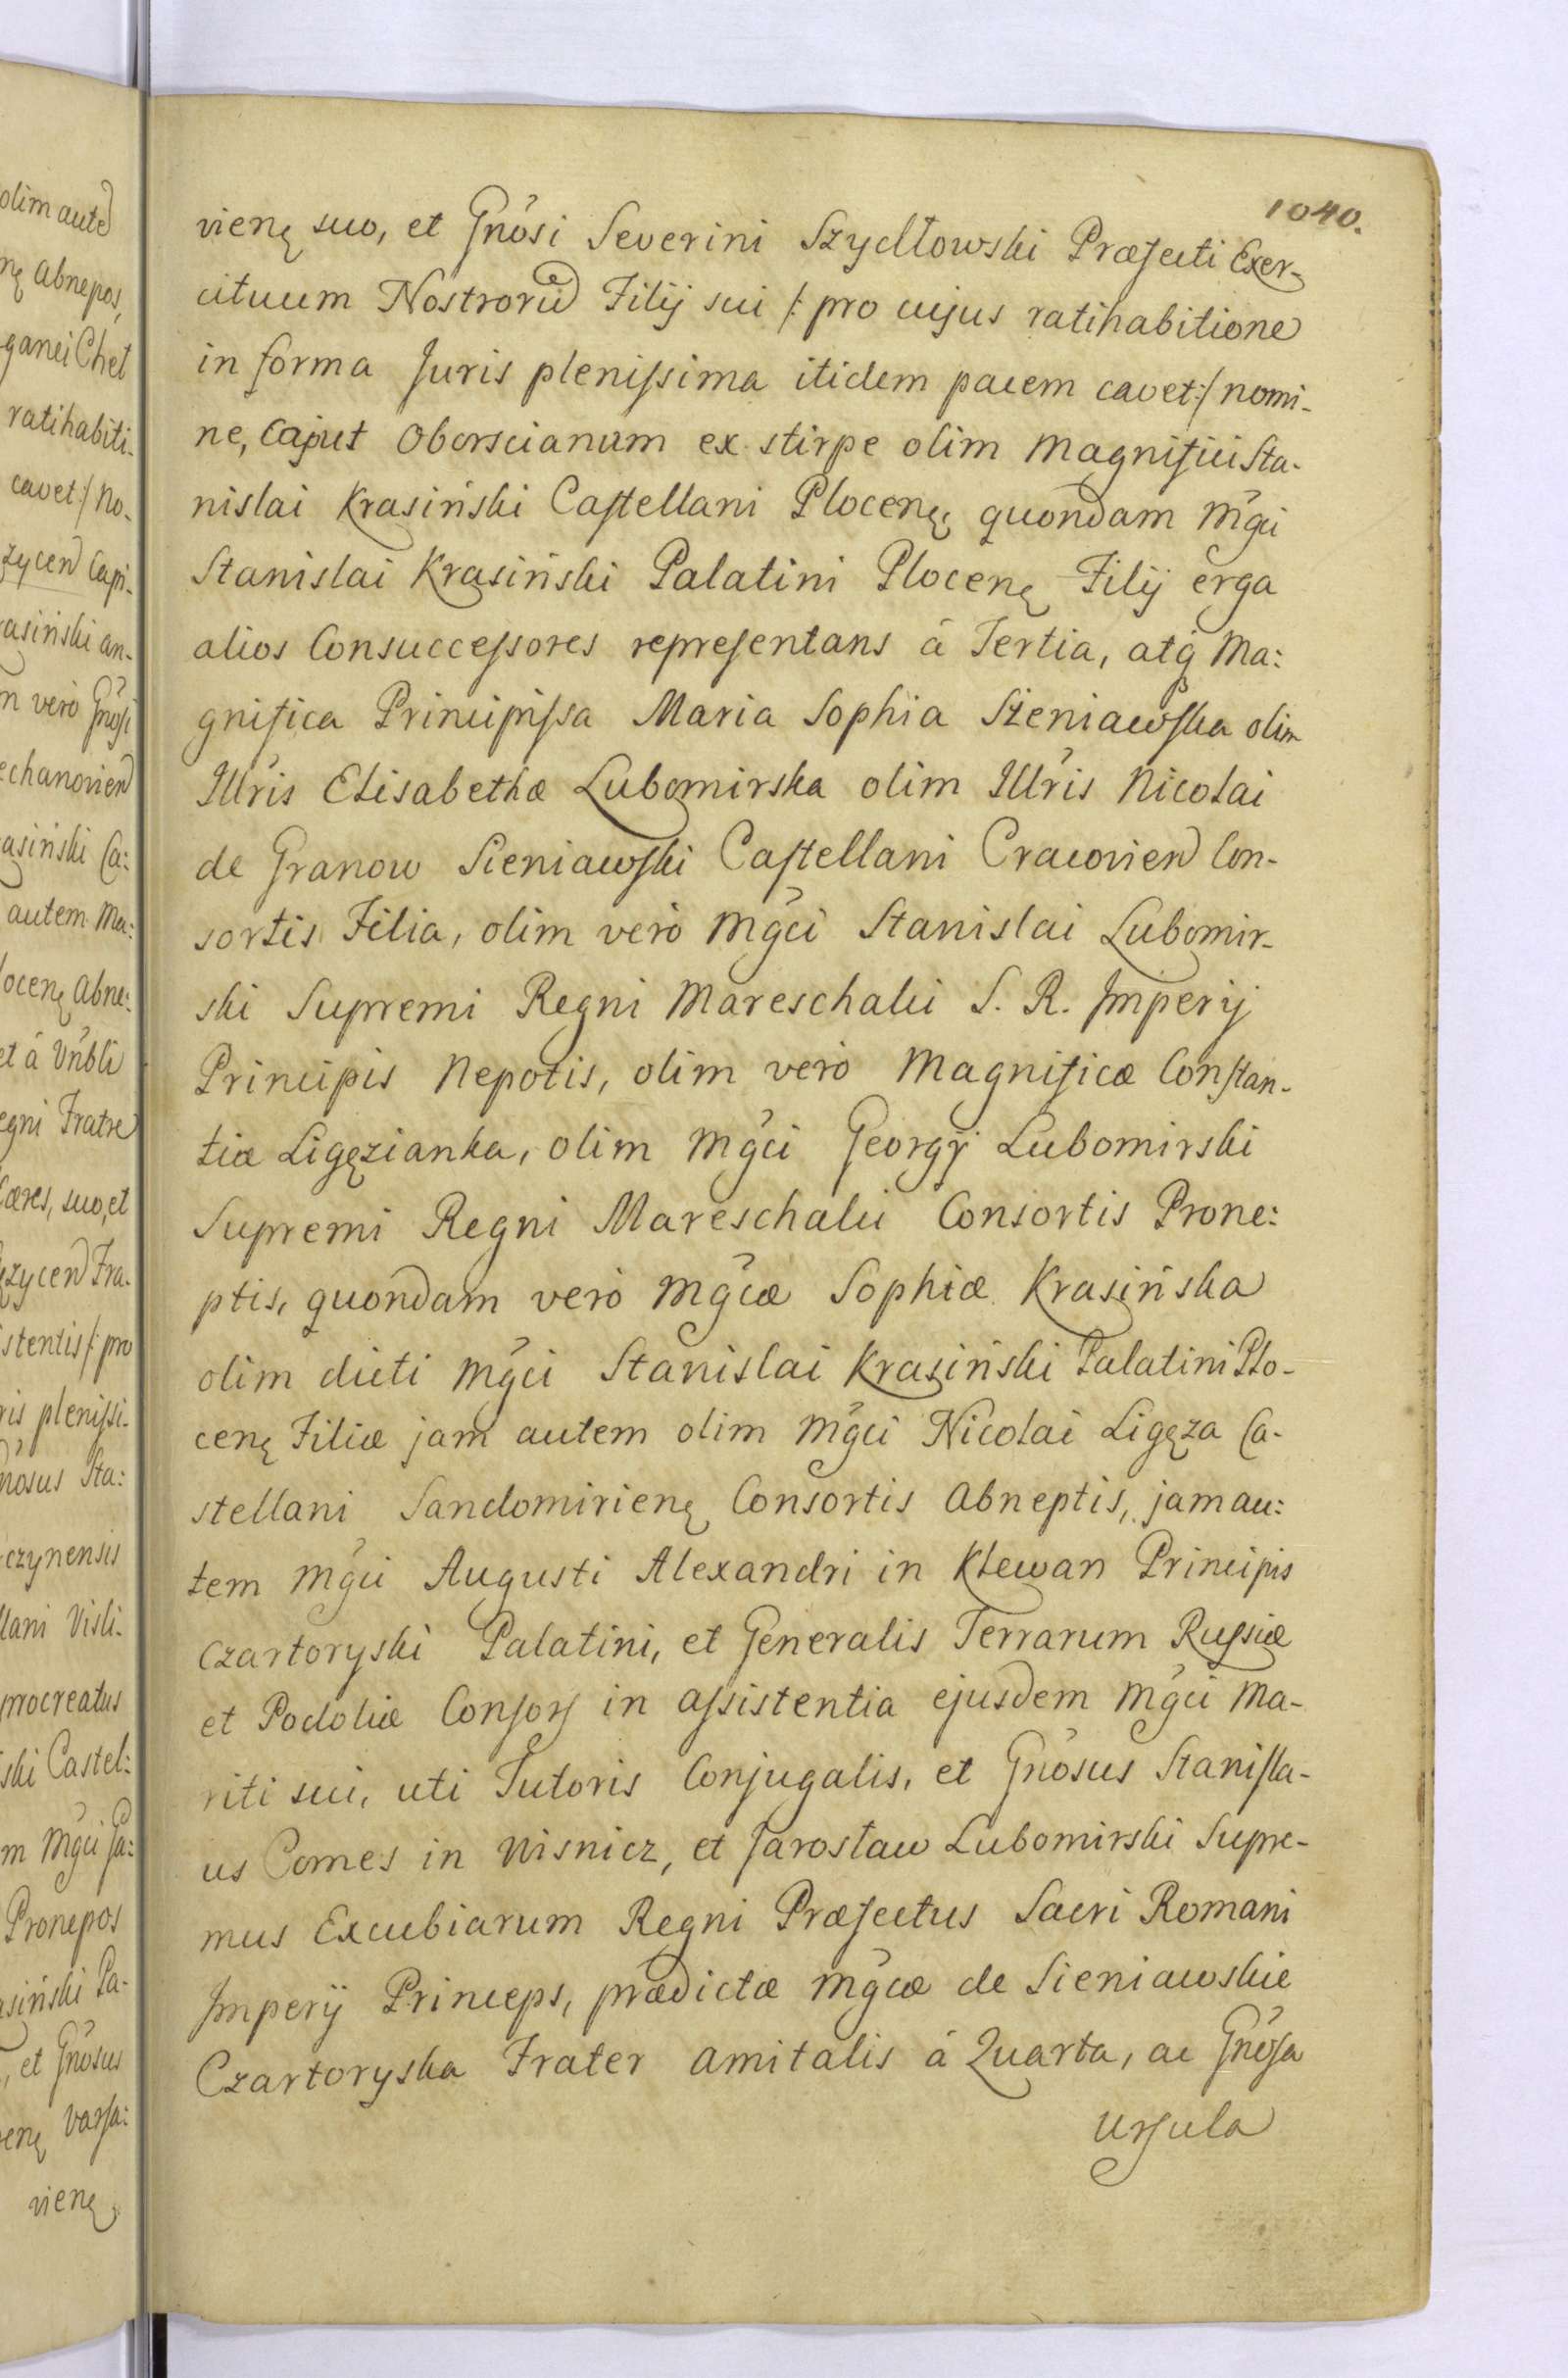 olim aute
nę Abnepos,
ganei Chet
ratihabiti-
cavet :/ No-
zycen Capi-
asiński an-
m vero Gnosi
echanovien
asiński Ca:
autem Ma:
locenę Abne:
et á Vnbli
egni Fratre
Cæres, suo, et
ęzycen Fra-
istentis /: pro
ris plenissi-
nosus Sta:
czynensis
llani Visli-
procreatus
ski Castel:
m Mgci Ga:
Pronepos
asiński Pa-
, et Gnosus
enę Varsa:
vienę
1040.
vienę suo, et Gnosi Severini Szydłowski Præfecti Exer-
cituum Nostroru Filij sui /: pro cujus ratihabitione
in forma Juris plenissima itidem pacem cavet :/ nomi-
ne, Caput Oborscianum ex stirpe olim Magnifici Sta-
nislai Krasiński Castellani Plocenę, quondam Mgci
Stanislai Krasiński Palatini Plocenę Filij erga
alios Consuccessores representans á Tertia, atq Ma:
gnifica Principissa Maria Sophia Sieniawska olim
Illris Elisabethæ Lubomirska olim Illris Nicolai
de Granow Sieniawski Castellani Cracovien Con-
sortis Filia, olim vero Mgci Stanislai Lubomir-
ski Supremi Regni Mareschalci S. R. Imperij
Principis Nepotis, olim vero Magnificæ Constan-
tiæ Ligęzianka, olim Mgci Georgij Lubomirski
Supremi Regni Mareschalci Consortis Prone:
ptis, quondam vero Mgcæ Sophiæ Krasińska
olim dicti Mgci Stanislai Krasiński Palatini Plo-
cenę Filiæ jam autem olim Mgci Nicolai Ligęza Ca-
stellani Sandomirienę Consortis Abneptis, jam au:
tem Mgci Augusti Alexandri in Klewan Principis
Czartoryski Palatini, et Generalis Terrarum Russiæ
et Podoliæ Consors in assistentia ejusdem Mgci Ma-
riti sui, uti Tutoris Conjugalis, et Gnosus Stanisla-
us Comes in Wisnicz, et Jarosław Lubomirski Supre-
mus Excubiarum Regni Præfectus Sacri Romani
Imperij Princeps, prædictæ Mgcæ de Sieniawskie
Czartoryska Frater amitalis á Quarta, ac Gnosa
Ursula